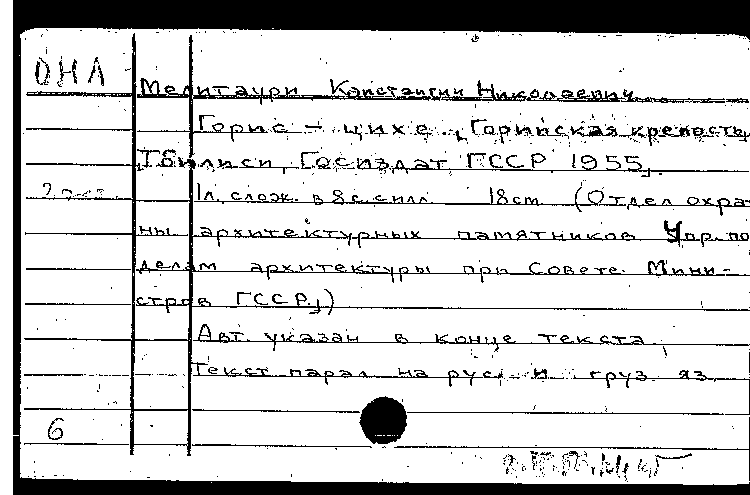 ОНЛ
Мелитаури, Константин Николаевич.
Горис-цихе. Горийская крепость
Тбилиси, Госиздат ГССР, 1955.
1л. слож. в 8с. с илл. 18см (Отдел охра-
ны архитектурных памятников Упр. по
делам архитектуры при Совете Мини-
стров ГССР.)
Авт. указан в конце текста.
Текст парал. на рус. и груз. яз.
6